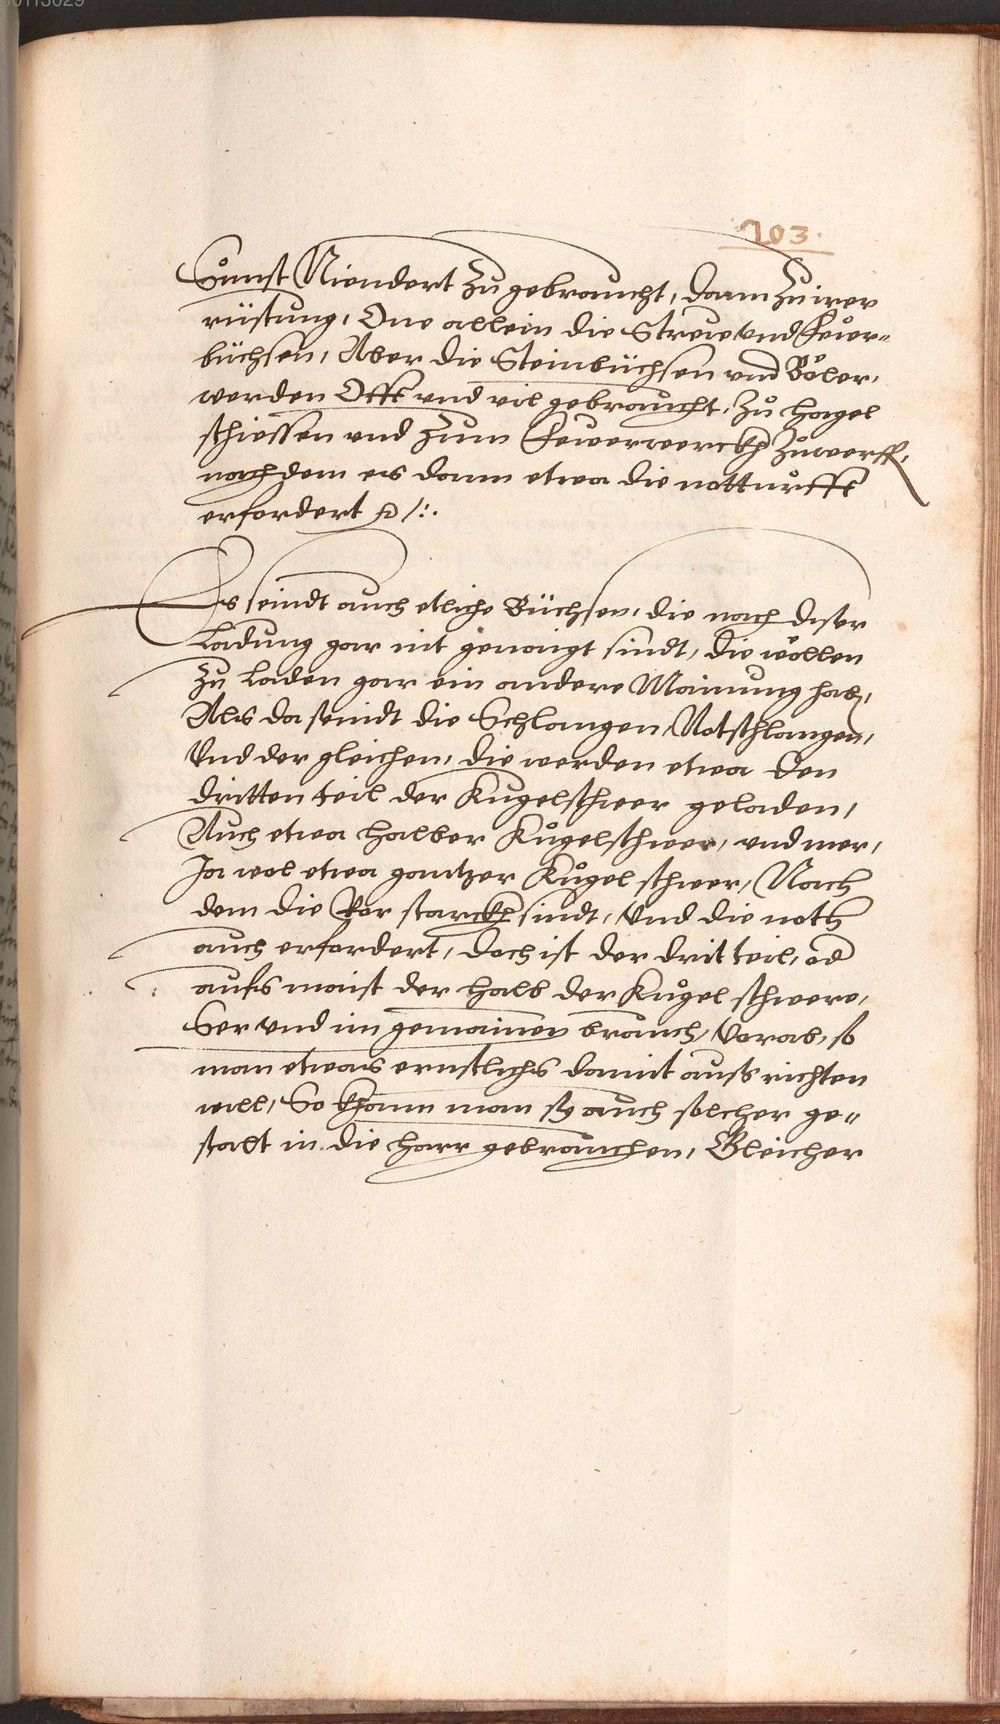 00113029
203.
Sůnst Niendert zu gebraucht, dann zu irer
rüstung, One allein die Streue vnd Feůer=
büchsen, Aber die Steinbüchsen vnd Böler,
werden Offt vnd vil gebraucht, Zů hagel
schiessen vnd zum Feuerwerckh Zůwerff,
nach dem es dann etwa die notturfft
erfordert /:.
Es seindt auch etliche Büchsen, die nach diser
Ladung gar nit genaigt sindt, die wöllen
Zu Laden gar ein andere Mainung hab,
Als da seindt die Schlangen, Notschlangen,
Vnd der gleichen, die werden etwa den
dritten teil der Kugelschwer geladen,
Auch etwa halber Kůgelschwer, vnd mer,
Ja wol etwa gantzer Kůgel schwer, Nach
dem die Ror starckh sindt, Vnd die noth
auch erfordert, doch ist der drit teil, od
aufs maist der halb der Kůgel schwere,
Ser vnd im gemainen brauch, Vorab, so
man etwas ernstlichs damit aufs richten
will, So khann man sy auch solcher ge=
stalt in die harr gebrauchen, Gleicher